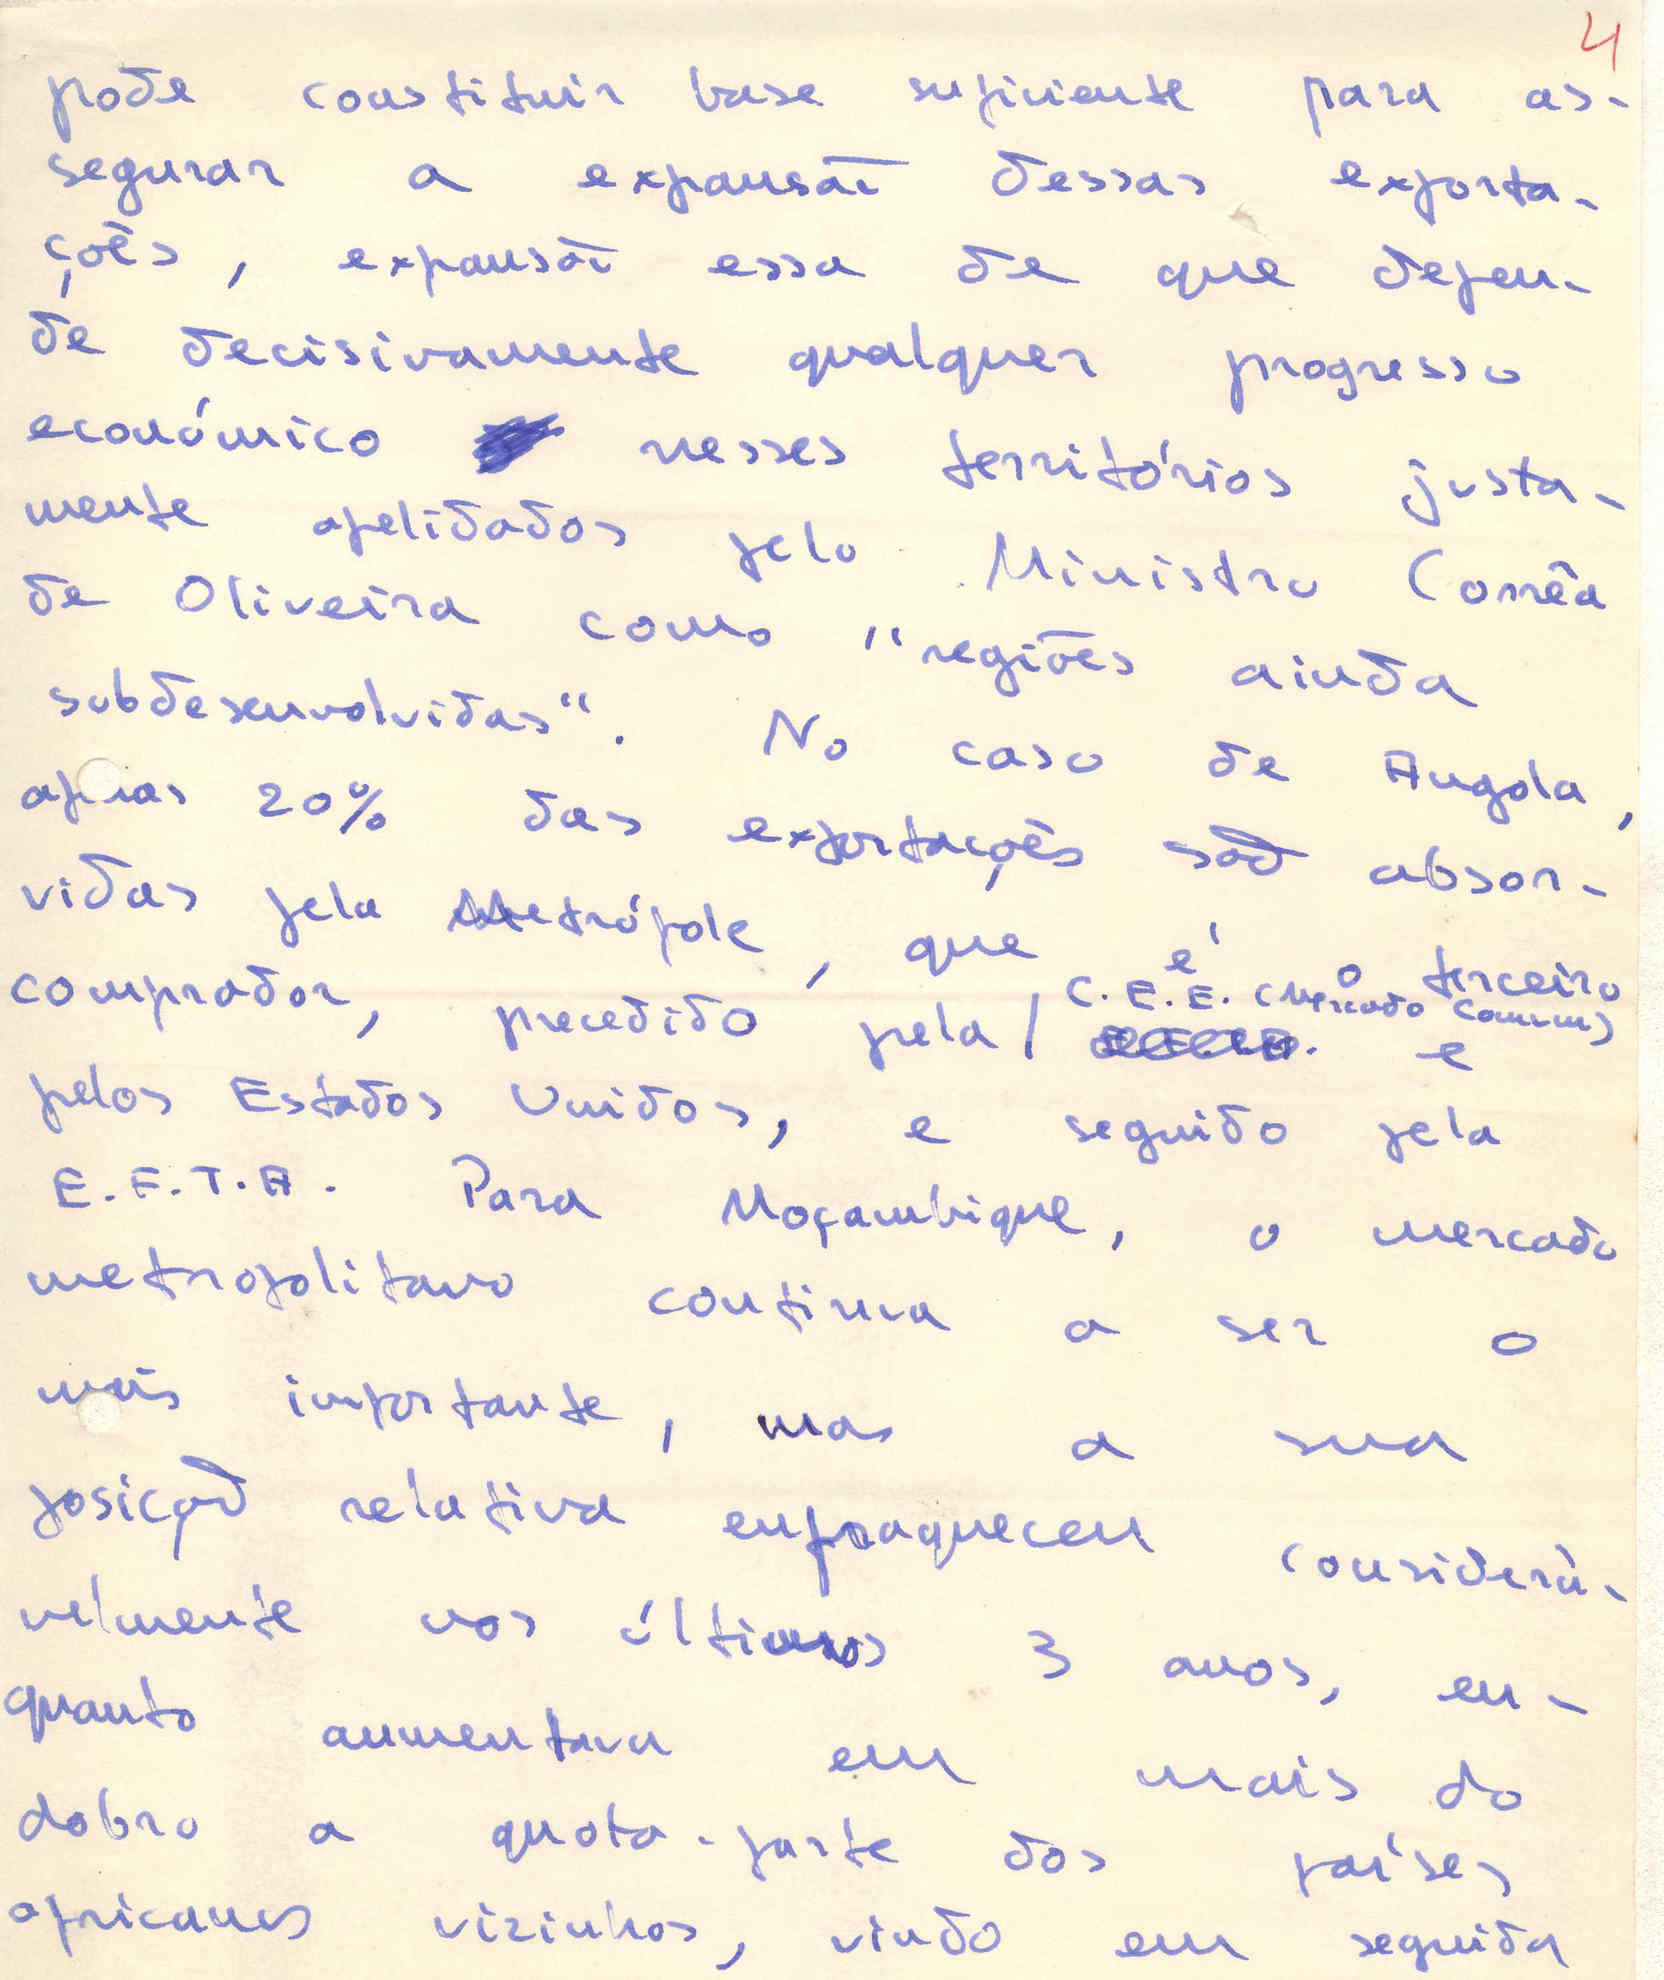 4
pode constituir base suficiente para as-
segurar a expansão dessas exporta-
ções, expansão essa de que depen-
de decisivamente qualquer progresso
económico nesses territórios justa-
mente apelidados pelo Ministro Corrêa
de Oliveira como "regiões ainda
subdesenvolvidas". No caso de Angola,
apnas 20% das exportações são absor-
vidas pela Metrópole, que é o terceiro
comprador, precedido pela / C.E.E. (Mercado Comum) e
pelos Estados Unidos, e seguido pela
E.F.T.A. Para Moçambique, o mercado
metropolitano continua a ser o
mais importante, mas a sua
posição relativa enfraqueceu considerà-
velmente nos últimos 3 anos, en-
quanto aumentava em mais do
dobro a quota-parte dos países
africanos vizinhos, vindo em seguida